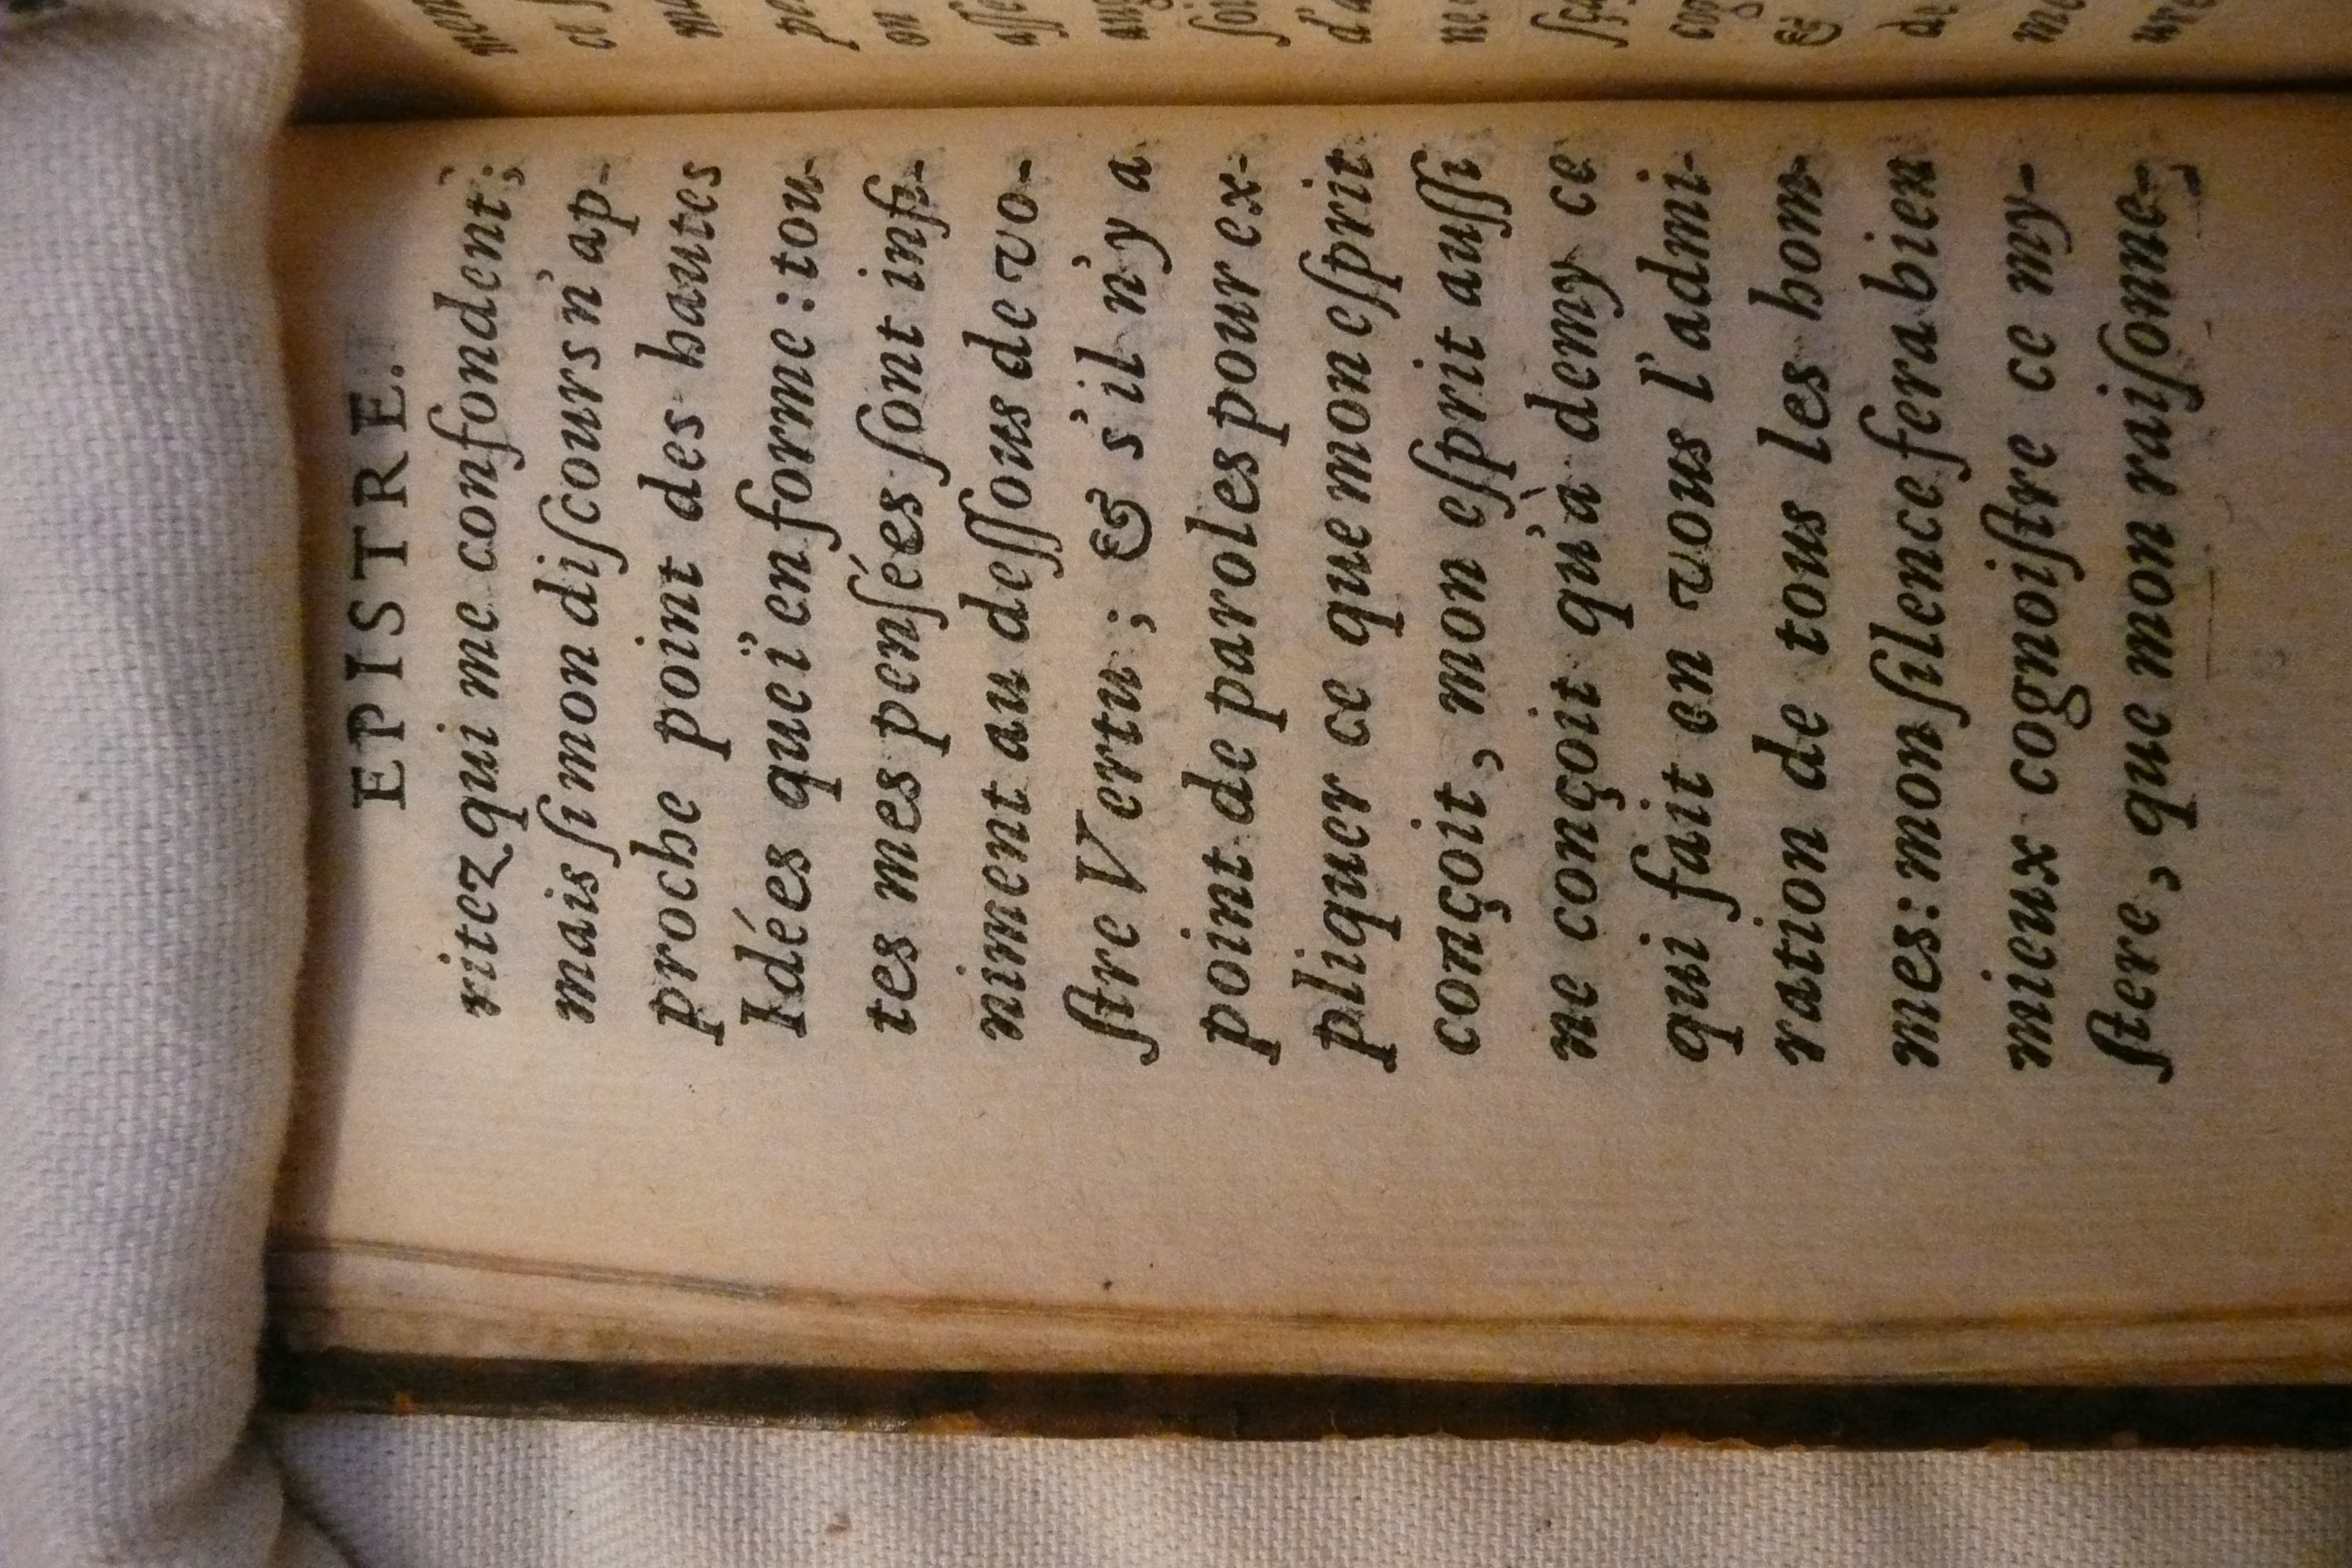 EPISTRE.
ritez qui me confondent;
mais ſi mon diſcours n'ap-
proche point des hautes
Idées que i'en forme: tou-
tes mes penſées ſont infi-
niment au deſſous de vo-
ſtre Vertu; & s'il n'y a
point de paroles pour ex-
pliquer ce que mon eſprit
conçoit, mon eſprit auſſi
ne conçoit qu'à demy ce
qui fait en vous l'admi-
ration de tous les hom-
mes: mon ſilence fera bien
mieux cognoiſtre ce my-
ſtere, que mon raiſonne-